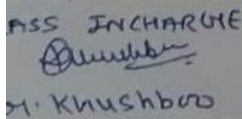 ASS INCHARGE
H. Khushboo